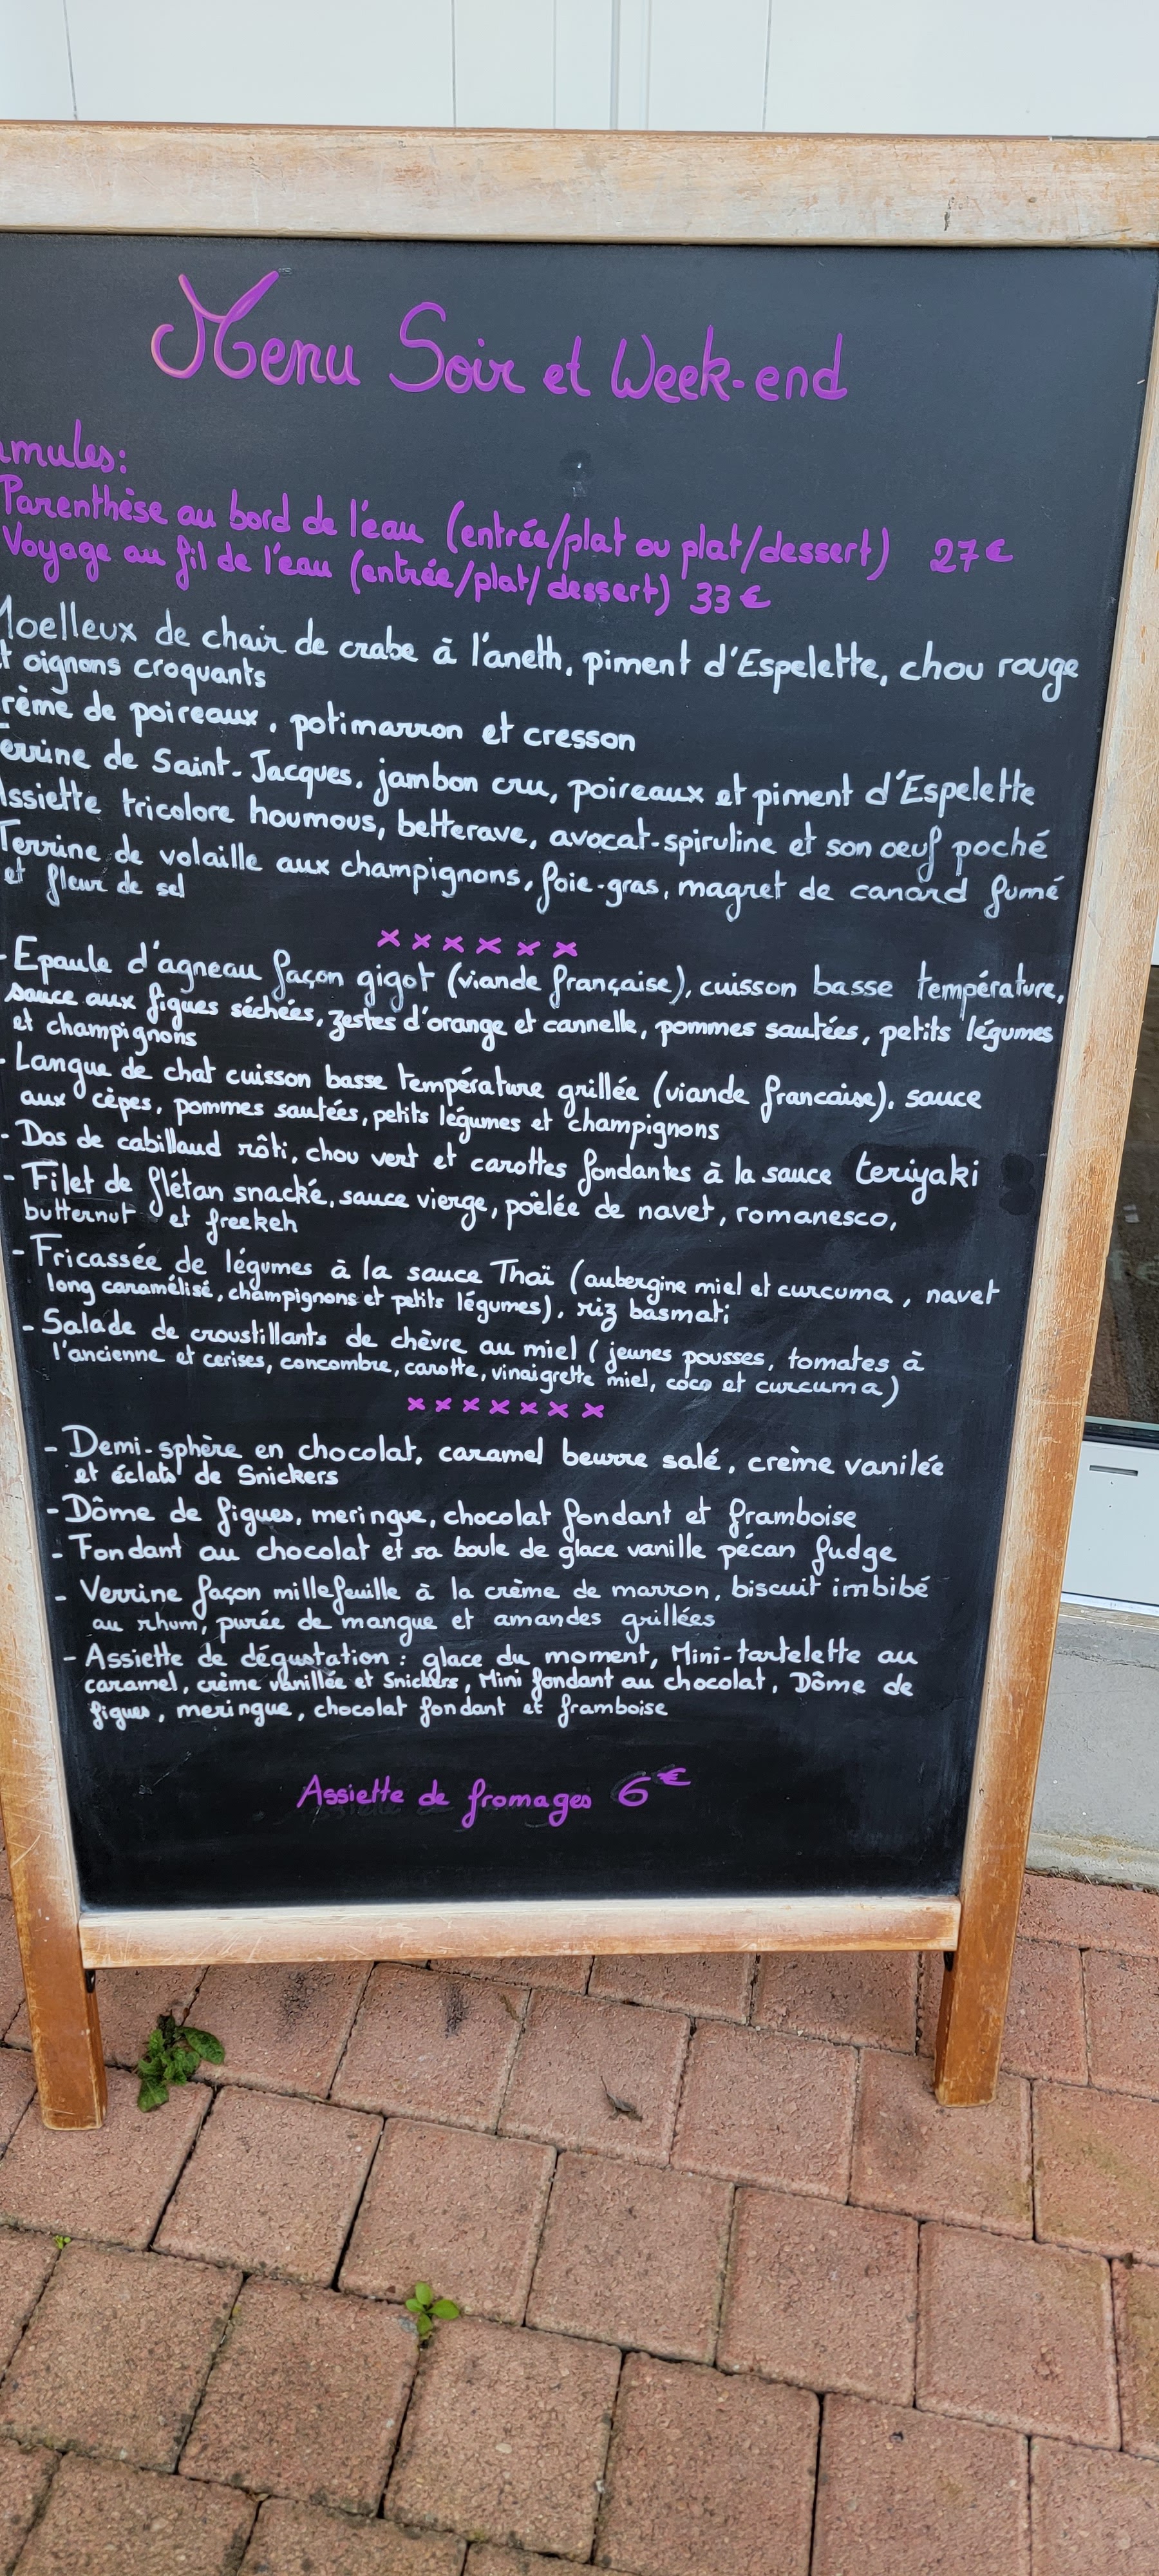 Menu Soir et Week-end
mules:
Parenthèse au bord de l'eau (entrée/plat ou plat/dessert) 27€
Voyage au fil de l'eau (entrée/plat/dessert) 33€
Moelleux de chair de crabe à l'aneth, piment d'Espelette, chou rouge
t oignons croquants
rème de poireaux, potimarron et cresson
Terrine de Saint-Jacques, jambon cru, poireaux et piment d'Espelette
Assiette tricolore houmous, betterave, avocat-spiruline et son oeuf poché
Terrine de volaille aux champignons, foie-gras, magret de canard fumé
et fleur de sel
xxxxxx
- Epaule d'agneau façon gigot (viande française), cuisson basse température,
sauce aux figues séchées, zestes d'orange et cannelle, pommes sautées, petits légumes
et champignons
- Langue de chat cuisson basse température grillée (viande francaise), sauce
aux cèpes, pommes sautées, petits légumes et champignons
- Dos de cabillaud rôti, chou vert et carottes fondantes à la sauce teriyaki
- Filet de flétan snacké, sauce vierge, poêlée de navet, romanesco,
butternut et freekeh
- Fricassée de légumes à la sauce Thaï (aubergine miel et curcuma, navet
long caramélisé, champignons et petits légumes), riz basmati
- Salade de croustillants de chèvre au miel (jeunes pousses, tomates à
l'ancienne et cerises, concombre, carotte, vinaigrette miel, coco et curcuma)
xxxxxxx
- Demi-sphère en chocolat, caramel beurre salé, crème vanilée
et éclats de Snickers
- Dôme de figues, meringue, chocolat fondant et framboise
- Fondant au chocolat et sa boule de glace vanille pécan fudge
- Verrine façon millefeuille à la crème de marron, biscuit imbibé
au rhum, purée de mangue et amandes grillées
- Assiette de dégustation : glace du moment, Mini-tartelette au
caramel, crème vanillée et Snickers, Mini fondant au chocolat, Dôme de
figues, meringue, chocolat fondant et framboise
Assiette de fromages 6€